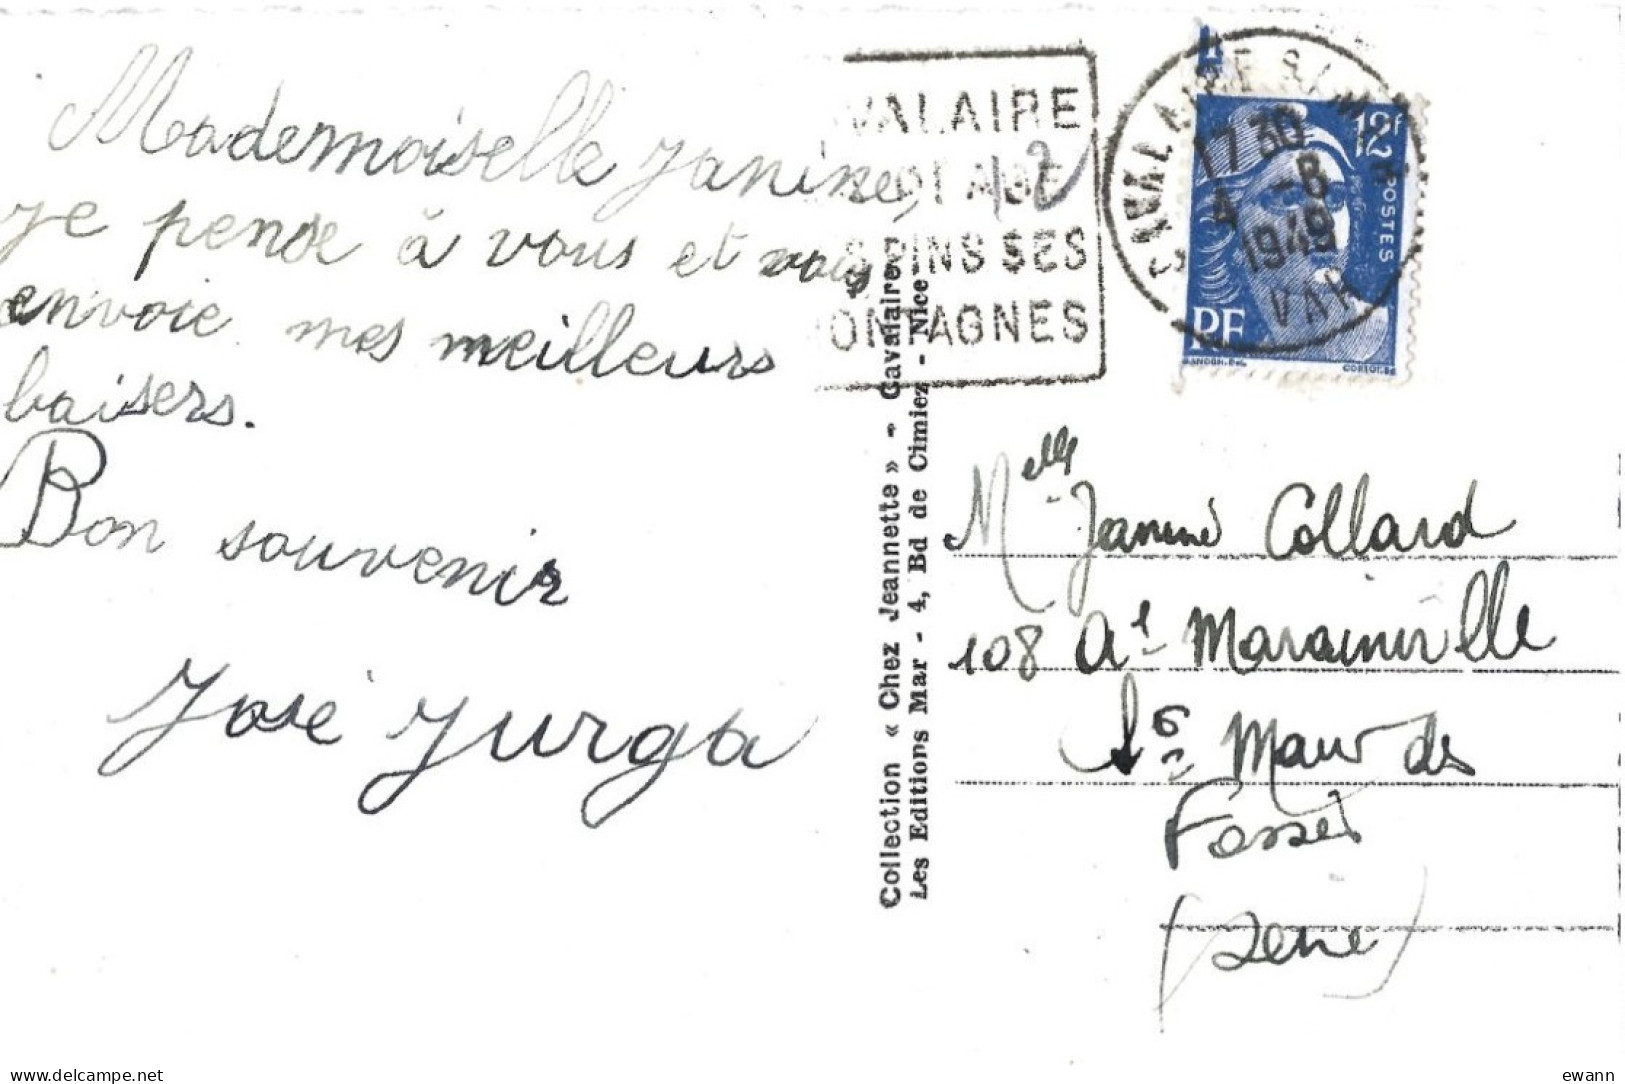 Mademoiselle Janine,
je pense à vous et vous
envoie mes meilleurs
baisers.
Bon souvenir
José Jurga
VALAIRE
PLAGE
S PINS SES
ONTAGNES
12
CAVALAIRE S/MER
17 30
4 -8
1949
VAR
12f
POSTES
RF
GANDON.DEL.
CORTOT.SC
Collection « Chez Jeannette » - Cavalaire
Les Editions Mar - 4, Bd de Cimiez - Nice
Melle Janine Collard
108 Al Marainville
St Maur des
Fossés
(Seine)
delcampe.net
ewann